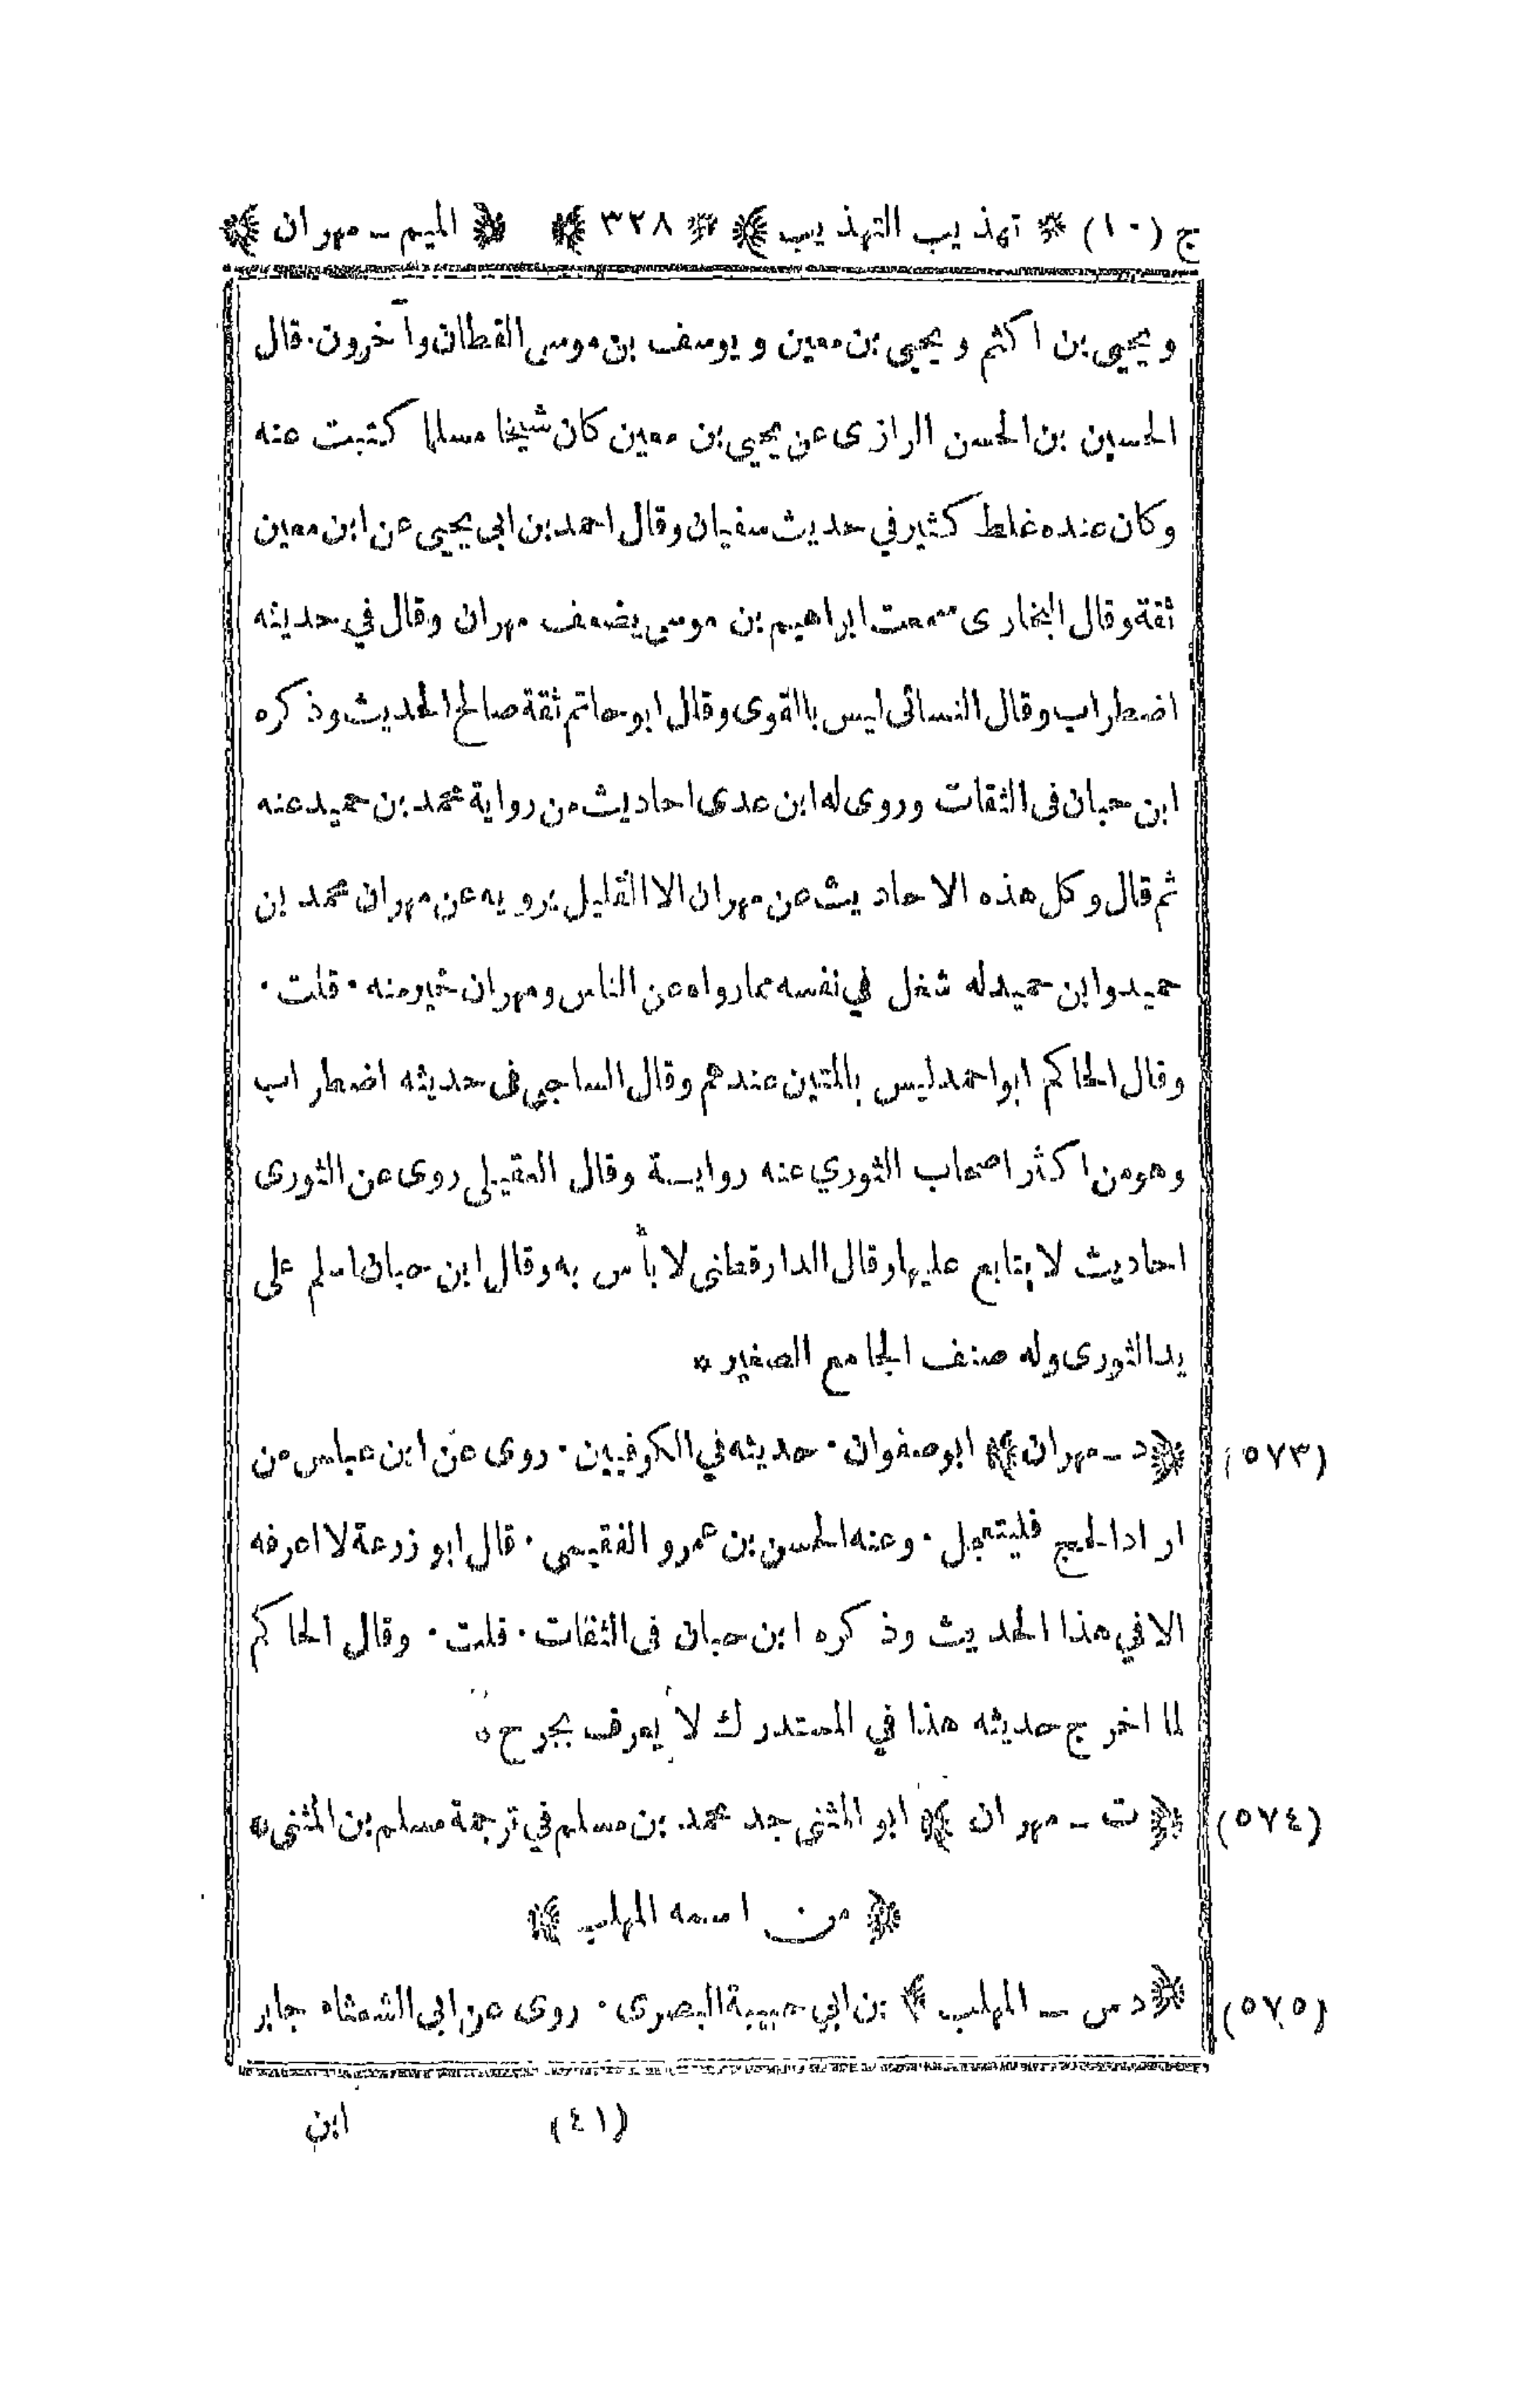 ج (١٠) * تهذيب التهذيب ﴾ * ٣٢٨ ﴾ ﴿ الميم ـ مهران ﴾
ويحيى بن اكثم ويحيى بن معين ويوسف بن موسى القطان وآخرون ٠ قال
الحسين بن الحسن الرازى عن يحيى بن معين كان شيخا مسلما كتبت عنه
وكان عنده غلط كثير في حديث سفيان وقال احمد بن ابى يحيى عن ابن معين
ثقة وقال البخارى سمعت ابراهيم بن موسى يضعف مهران وقال في حديثه
اضطراب وقال النسائى ليس بالقوى وقال ابو حاتم ثقة صالح الحديث وذكره
ابن حبان فى الثقات وروى له ابن عدى احاديث من رواية محمد بن حميد عنه
ثم قال وكل هذه الاحاديث عن مهران الا القليل يرويه عن مهران محمد بن
حميد وابن حميد له شغل في نفسه مما رواه عن الناس ومهران خير منه ٠ قلت ٠
وقال الحاكم ابو احمد ليس بالمتين عندهم وقال الساجى فى حديثه اضطراب
وهو من اكثر اصحاب الثوري عنه رواية وقال العقيلى روى عن الثورى
احاديث لا يتابع عليها وقال الدارقطنى لا بأس به وقال ابن حبان اسلم على
يد الثورى وله صنف الجامع الصغير *
(٥٧٣) ﴿ د ـ مهران ﴾ ابو صفوان ٠ حديثه في الكوفيين ٠ روى عن ابن عباس من
اراد الحج فليتعجل ٠ وعنه الحسن بن عمرو الفقيمى ٠ قال ابو زرعة لا اعرفه
الا في هذا الحديث وذكره ابن حبان فى الثقات ٠ قلت ٠ وقال الحاكم
لما اخرج حديثه هذا في المستدرك لا يعرف بجرح *
(٥٧٤) ﴿ ت ـ مهران ﴾ ابو المثنى جد محمد بن مسلم في ترجمة مسلم بن المثنى *
﴿ من اسمه المهلب ﴾
(٥٧٥) ﴿ د س ـ المهلب ﴾ بن ابي حبيبة البصرى ٠ روى عن ابى الشعثاء جابر
(٤١) ابن